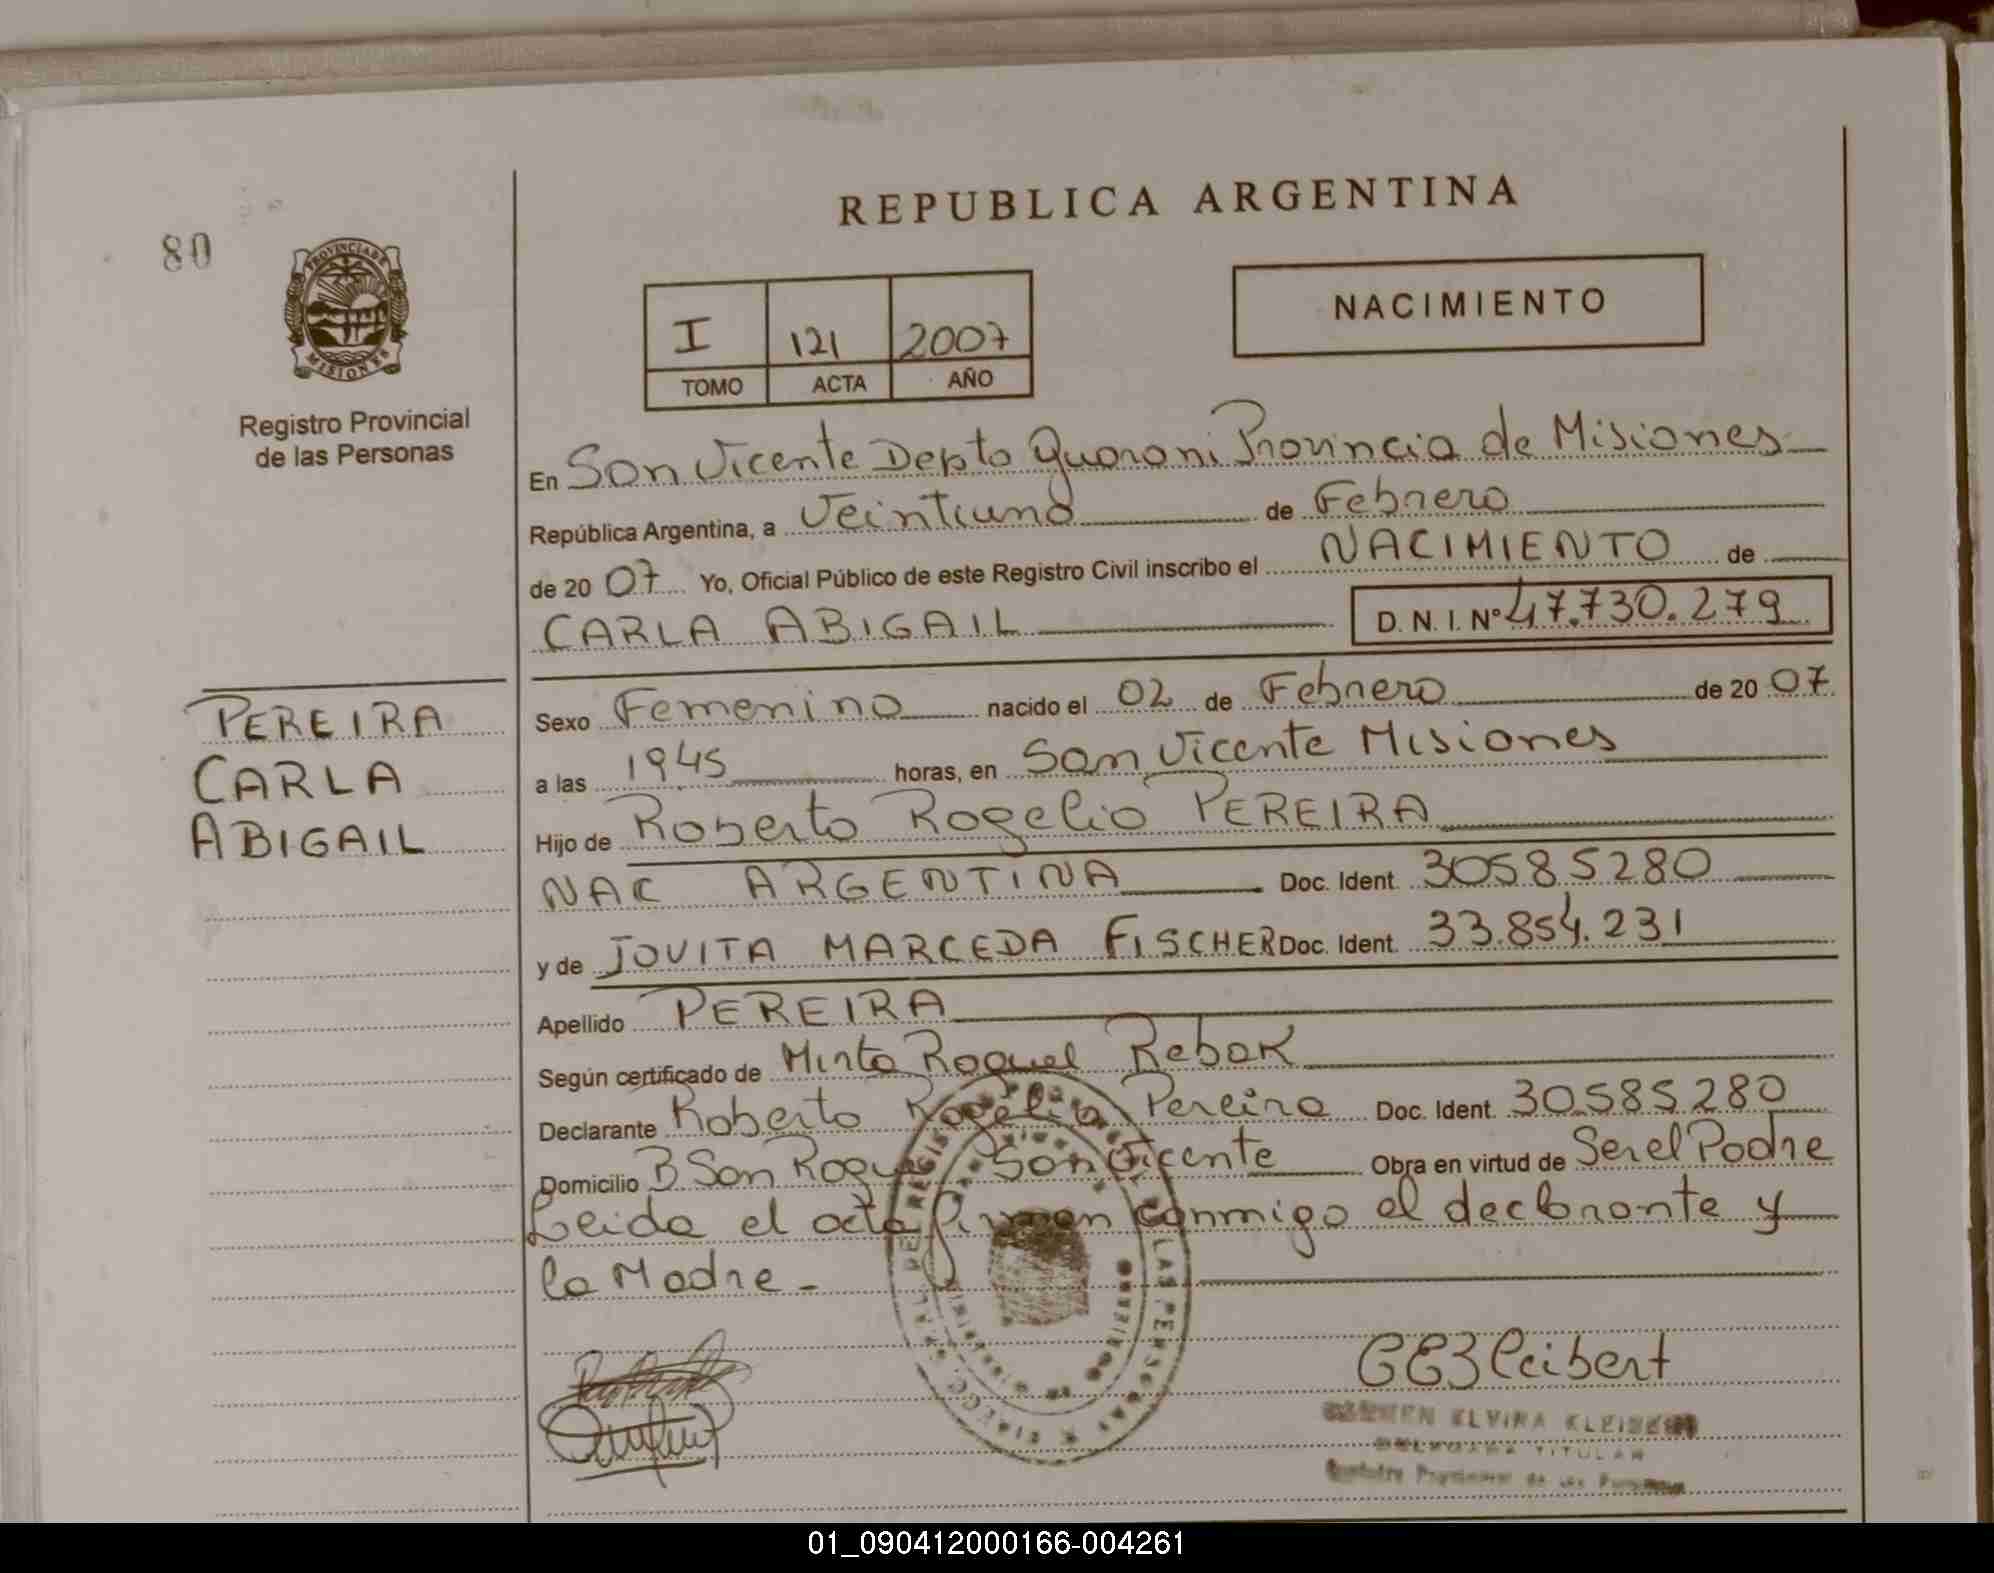 80
PROVINCIA DE
MISIONES
Registro Provincial
de las Personas
REPUBLICA ARGENTINA
I 121 2007
TOMO ACTA AÑO
NACIMIENTO
En San Vicente Depto Guarani Provincia de Misiones
República Argentina, a Veintiuno de Febrero
de 20 07 Yo, Oficial Público de este Registro Civil inscribo el NACIMIENTO de
CARLA ABIGAIL D. N. I. Nº 47.730.279
PEREIRA
CARLA
ABIGAIL
Sexo Femenino nacido el 02 de Febrero de 20 07
a las 1945 horas, en San Vicente Misiones
Hijo de Roberto Rogelio PEREIRA
NAC ARGENTINA Doc. Ident. 30585280
y de JOVITA MARCEDA FISCHER Doc. Ident. 33.854.231
Apellido PEREIRA
Según certificado de Mirta Raquel Rebak
Declarante Roberto Rogelio Pereira Doc. Ident. 30.585.280
Domicilio B San Roque San Vicente Obra en virtud de Ser el Padre
Leida el acta firman conmigo el declarante y
la Madre -
LAS PERSONAS
ELVIRA KLEIBERT
TITULAR
01_090412000166-004261